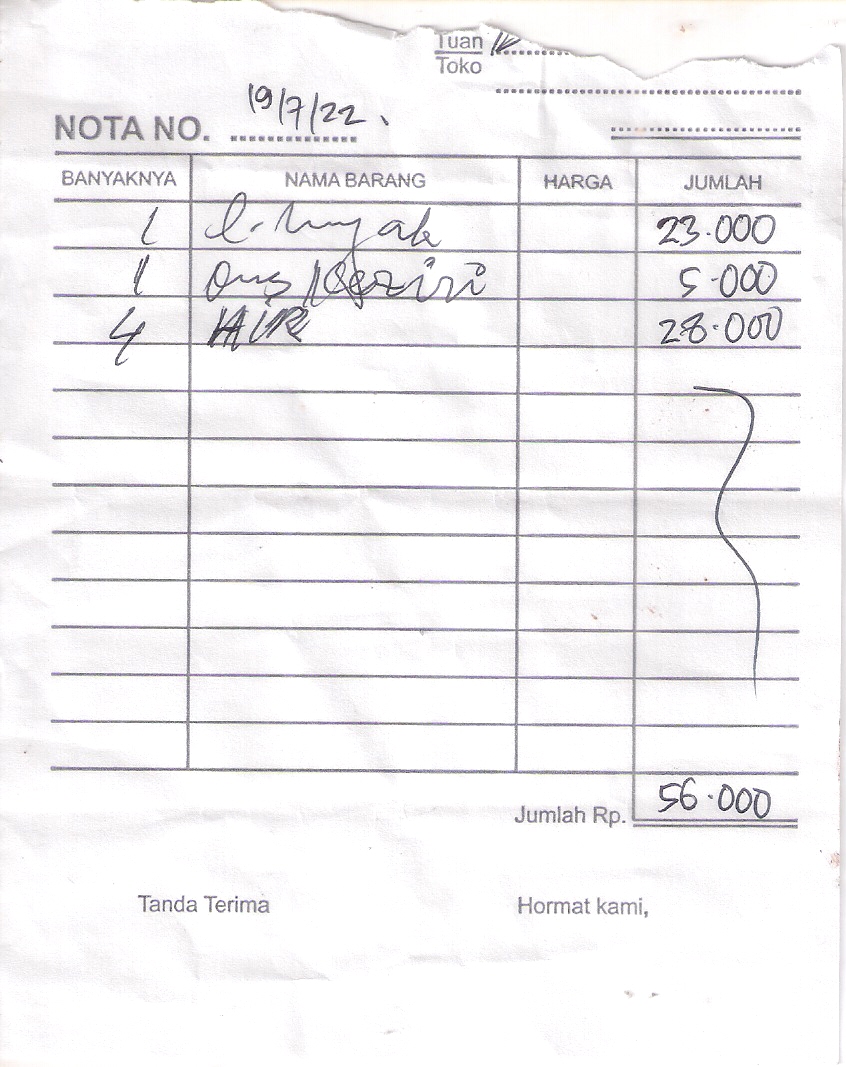 Tuan
Toko
NOTA NO. 19/7/22
BANYAKNYA NAMA BARANG HARGA JUMLAH
1 23.000
1 5.000
4 AIR 28.000
Jumlah Rp. 56.000
Tanda Terima Hormat kami,